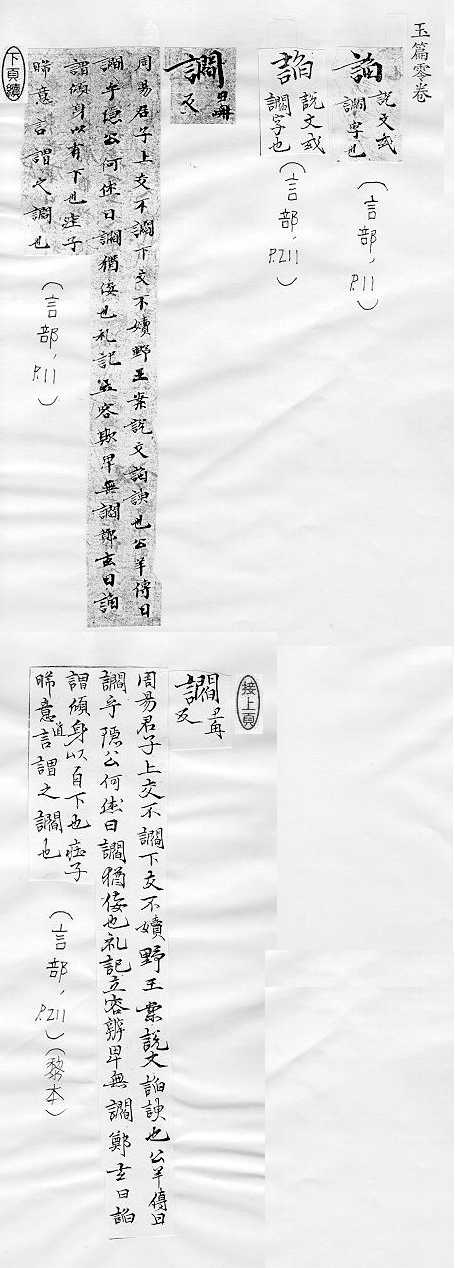 玉篇零卷
諂 說文或
讇字也
(言部, P.11)
諂 說文或
讇字也
(言部, P.211)
讇 丑冉
反
周易君子上交不讇下交不嬻野王案說文諂諛也公羊傳曰
讇乎隱公何休曰讇猶佞也礼記立容辨卑無讇鄭玄曰諂
謂傾身以有下也莊子
睎意言謂之讇也
(言部, P.11)
下頁續
接上頁
讇 丑冉
反
周易君子上交不讇下交不嬻野王案說文諂諛也公羊傳曰
讇乎隱公何休曰讇猶佞也礼記立容辨卑無讇鄭玄曰諂
謂傾身以自下也莊子
睎意道言謂之讇也
(言部, P.211)(黎本)